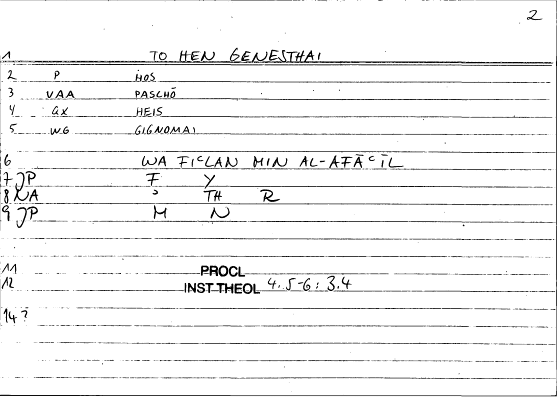 2
1 TO HEN GENESTHAI
2 P HOS
3 VAA PASCHŌ
4 GX HEIS
5 WG GIGNOMAI
6 WA FIᶜLAN MIN AL-AFĀᶜĪL
7 JP F Y
8 NA ʾ TH R
9 JP M N
11 PROCL
12 INST THEOL 4.5-6: 3.4
14 ?